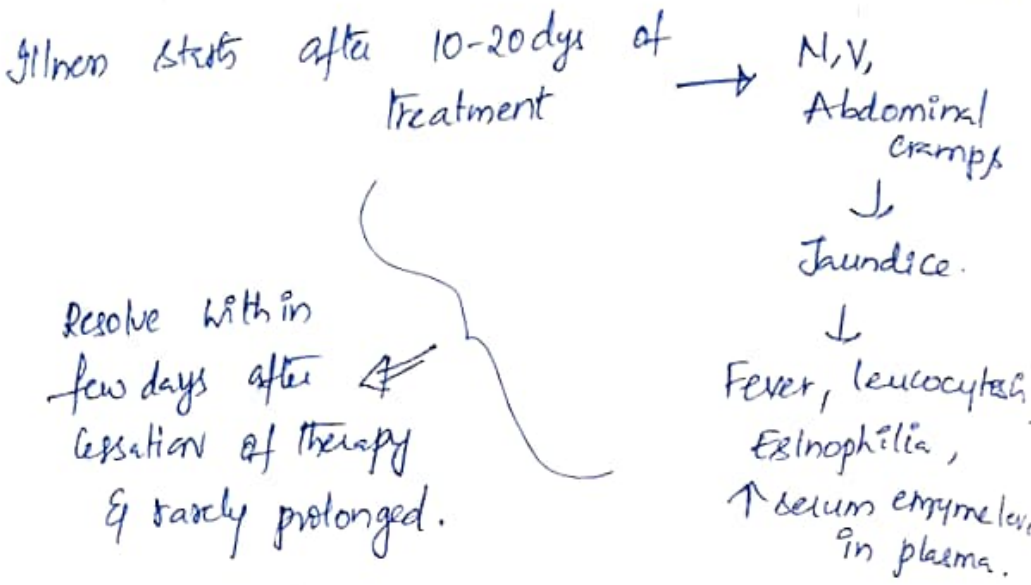 Illness starts after 10-20 dys of
Treatment
N, V,
Abdominal
cramps
Jaundice.
Fever, leucocytosis,
Esinophilia,
↑ serum enzyme level
in plasma.
Resolve within
few days after
Cessation of therapy
& rarely prolonged.